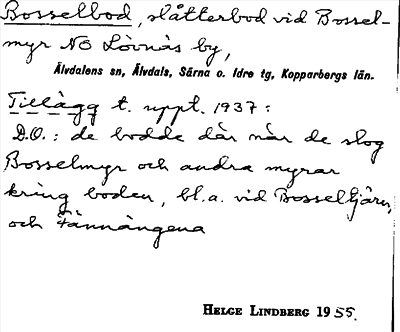 Bosselbod, slåtterbod vid Bossel-
myr NO Lövnäs by,
Älvdalens sn, Älvdals, Särna o. Idre tg, Kopparbergs län.
Tillägg t. uppt. 1937:
D.O.: de bodde där när de slog
Bosselmyr och andra myrar
kring boden, bl.a. vid Bosseltjärn,
och Fännängena
HELGE LINDBERG 1955.